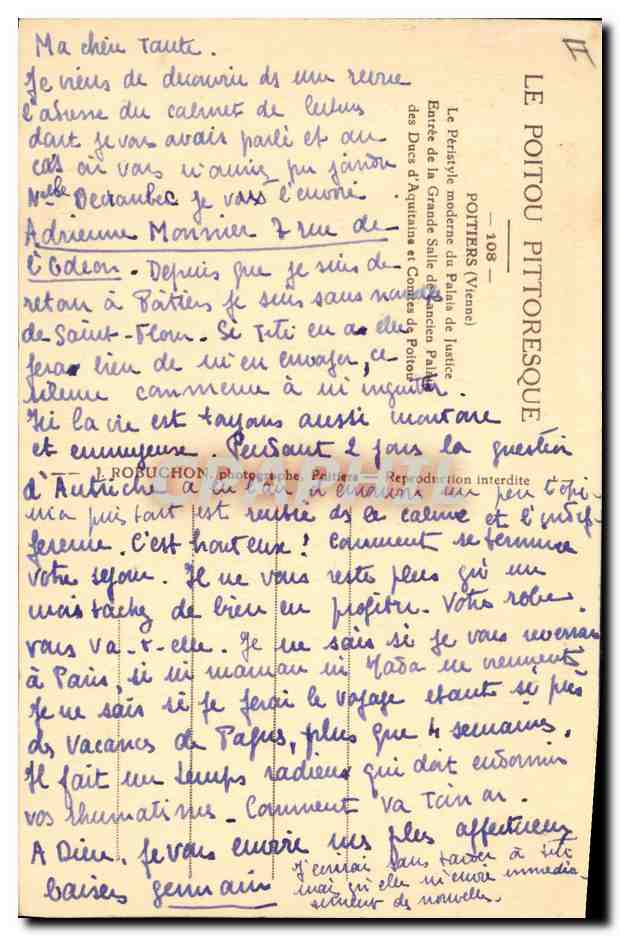 Ma chère Tante.
Je viens de découvrir ds une revue
l'adresse du cabinet de lecture
dont je vous avais parlé et au
cas où vous n'auriez pu joindre
je vous l'envoie
Adrienne Monnier 7 rue de
l'Odéon. Depuis que je suis de
retour à Poitiers je suis sans nouvelles
de Saint-Flour. Si Titi en a elle
fera bien de m'en envoyer, ce
silence commence à m'inquiéter.
Ici la vie est toujours aussi monotone
et ennuyeuse. Pendant 2 jours la question
d'Autriche a un peu l'opi-
nion puis tout est rentré ds le calme et l'indif-
férence. C'est honteux! Comment se termine
votre séjour. Il ne vous reste plus qu'un
mois tachez de bien en profiter. Votre robe
vous va-t-elle. Je ne sais si je vous reverrai
à Paris, si ni maman ni Mada ne viennent
Je ne sais si je ferai le voyage étant si près
des vacances de Pâques, plus que 4 semaines.
Il fait un temps radieux qui doit endormir
vos rhumatismes. Comment va
A Dieu. Je vous envoie mes plus affectueux
baisers germain
J'écrirai sans tarder à Titi
mais qu'elle m'envoie immédia-
tement des nouvelles.
II
LE POITOU PITTORESQUE
— 108 —
POITIERS (Vienne)
Le Péristyle moderne du Palais de Justice
Entrée de la Grande Salle de l'ancien Palais
des Ducs d'Aquitaine et Comtes de Poitou
J. ROBUCHON, photographe, Poitiers — Reproduction interdite